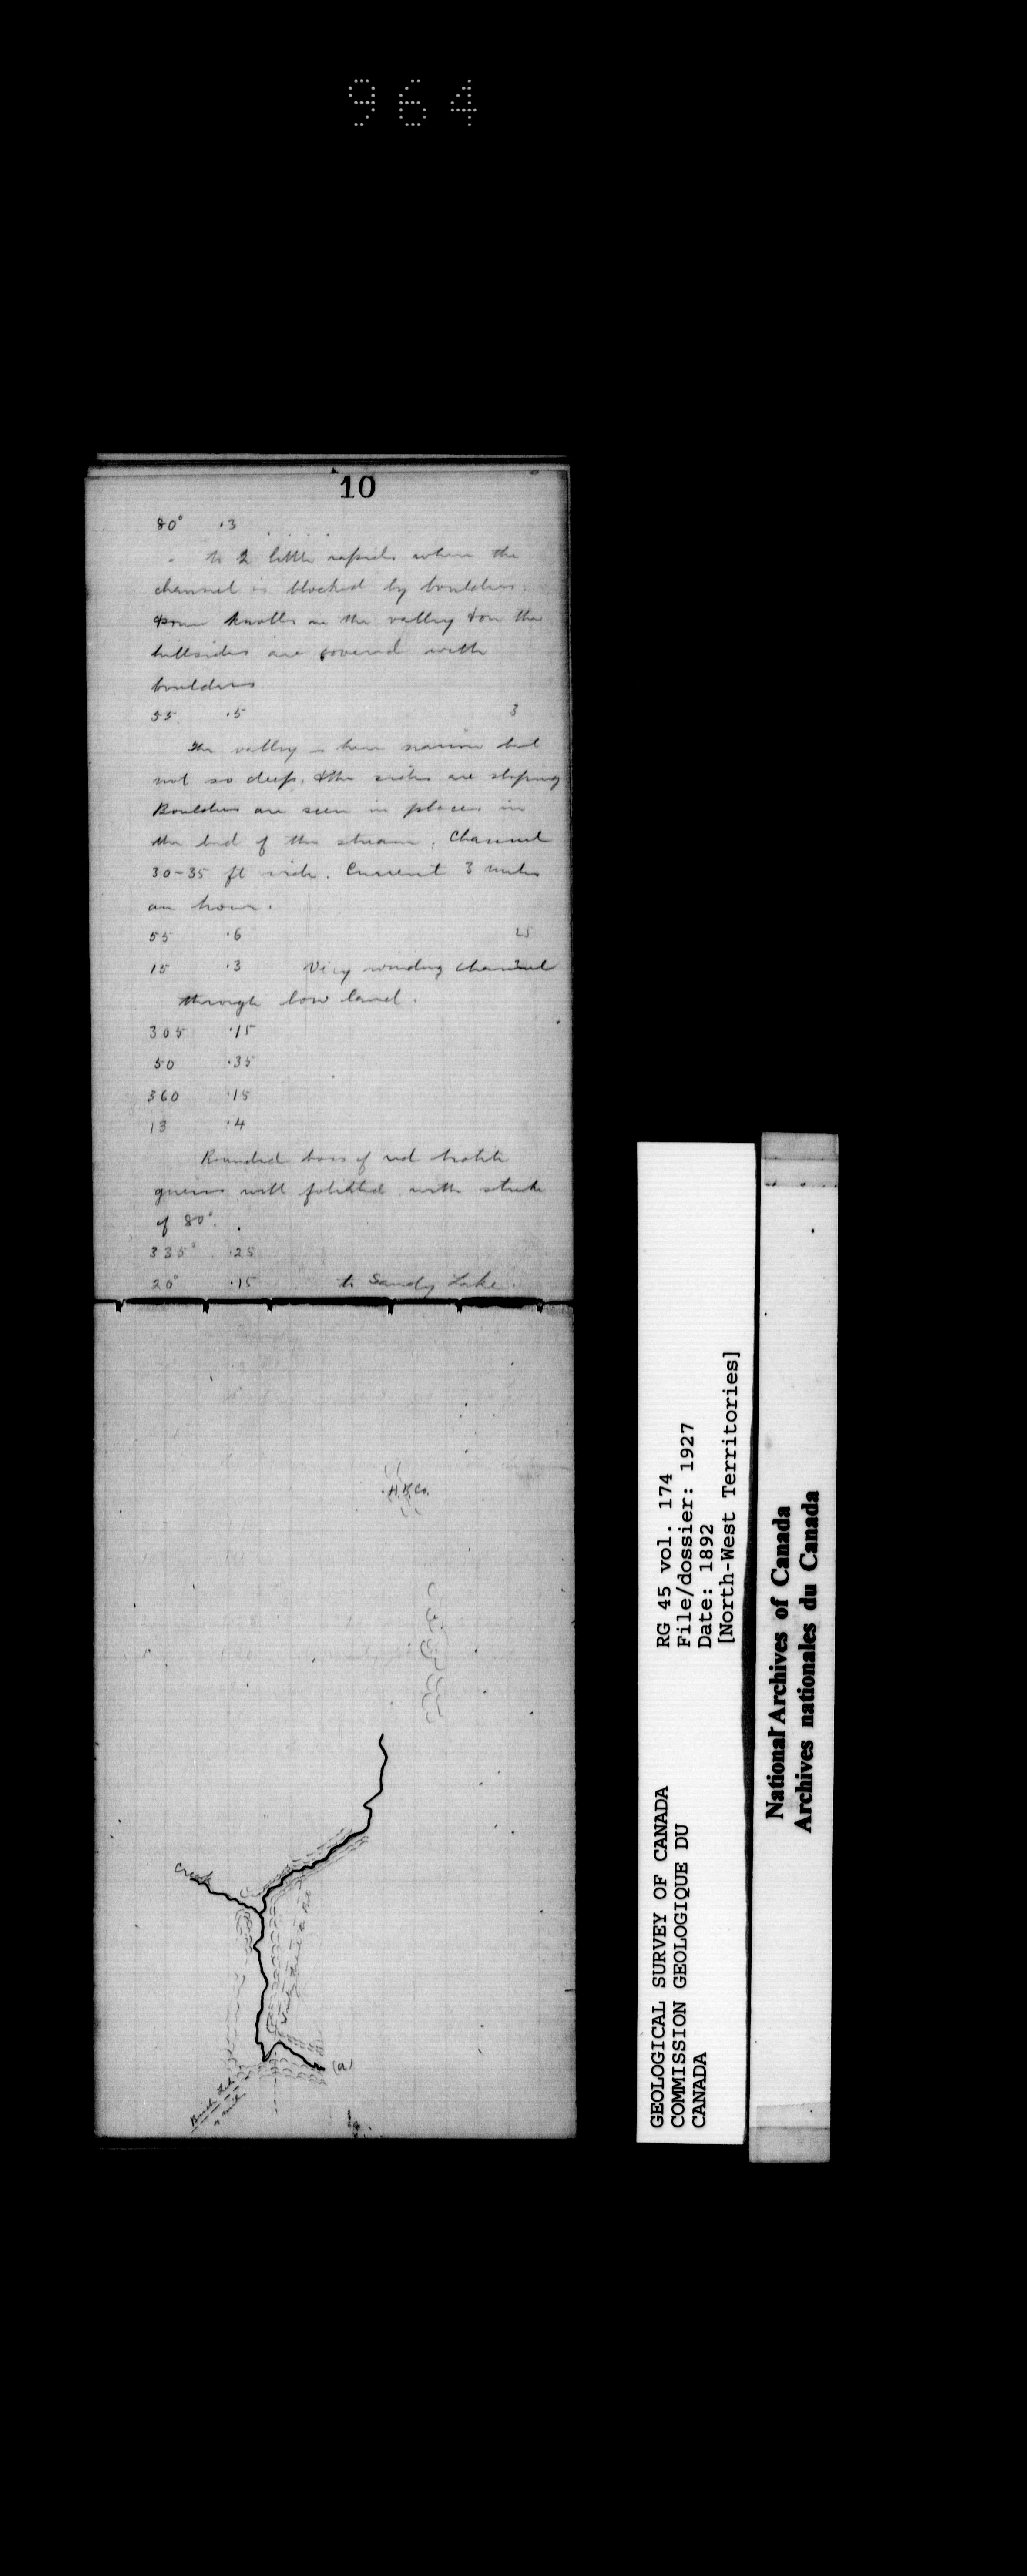 964
10
80° .3
to 2 little rapids where the
channel is blocked by boulders.
Some knolls in the valley & on the
hillsides are covered with
boulders
55 .5 3
The valley is here narrow but
not so deep, & the sides are sloping
Boulders are seen in places in
the bed of the stream. Channel
30-35 ft wide. Current 3 miles
an hour.
55 .6 25
15 .3 Very winding channel
through low land.
305 .15
50 .35
360 .15
13 .4
Rounded boss of red biotite
gneiss well foliated with strike
of 80°.
335° .25
20° .15 to Sandy Lake.
H.B.Co.
Creek
(a)
GEOLOGICAL SURVEY OF CANADA
COMMISSION GEOLOGIQUE DU
CANADA
RG 45 vol. 174
File/dossier: 1927
Date: 1892
[North-West Territories]
National Archives of Canada
Archives nationales du Canada